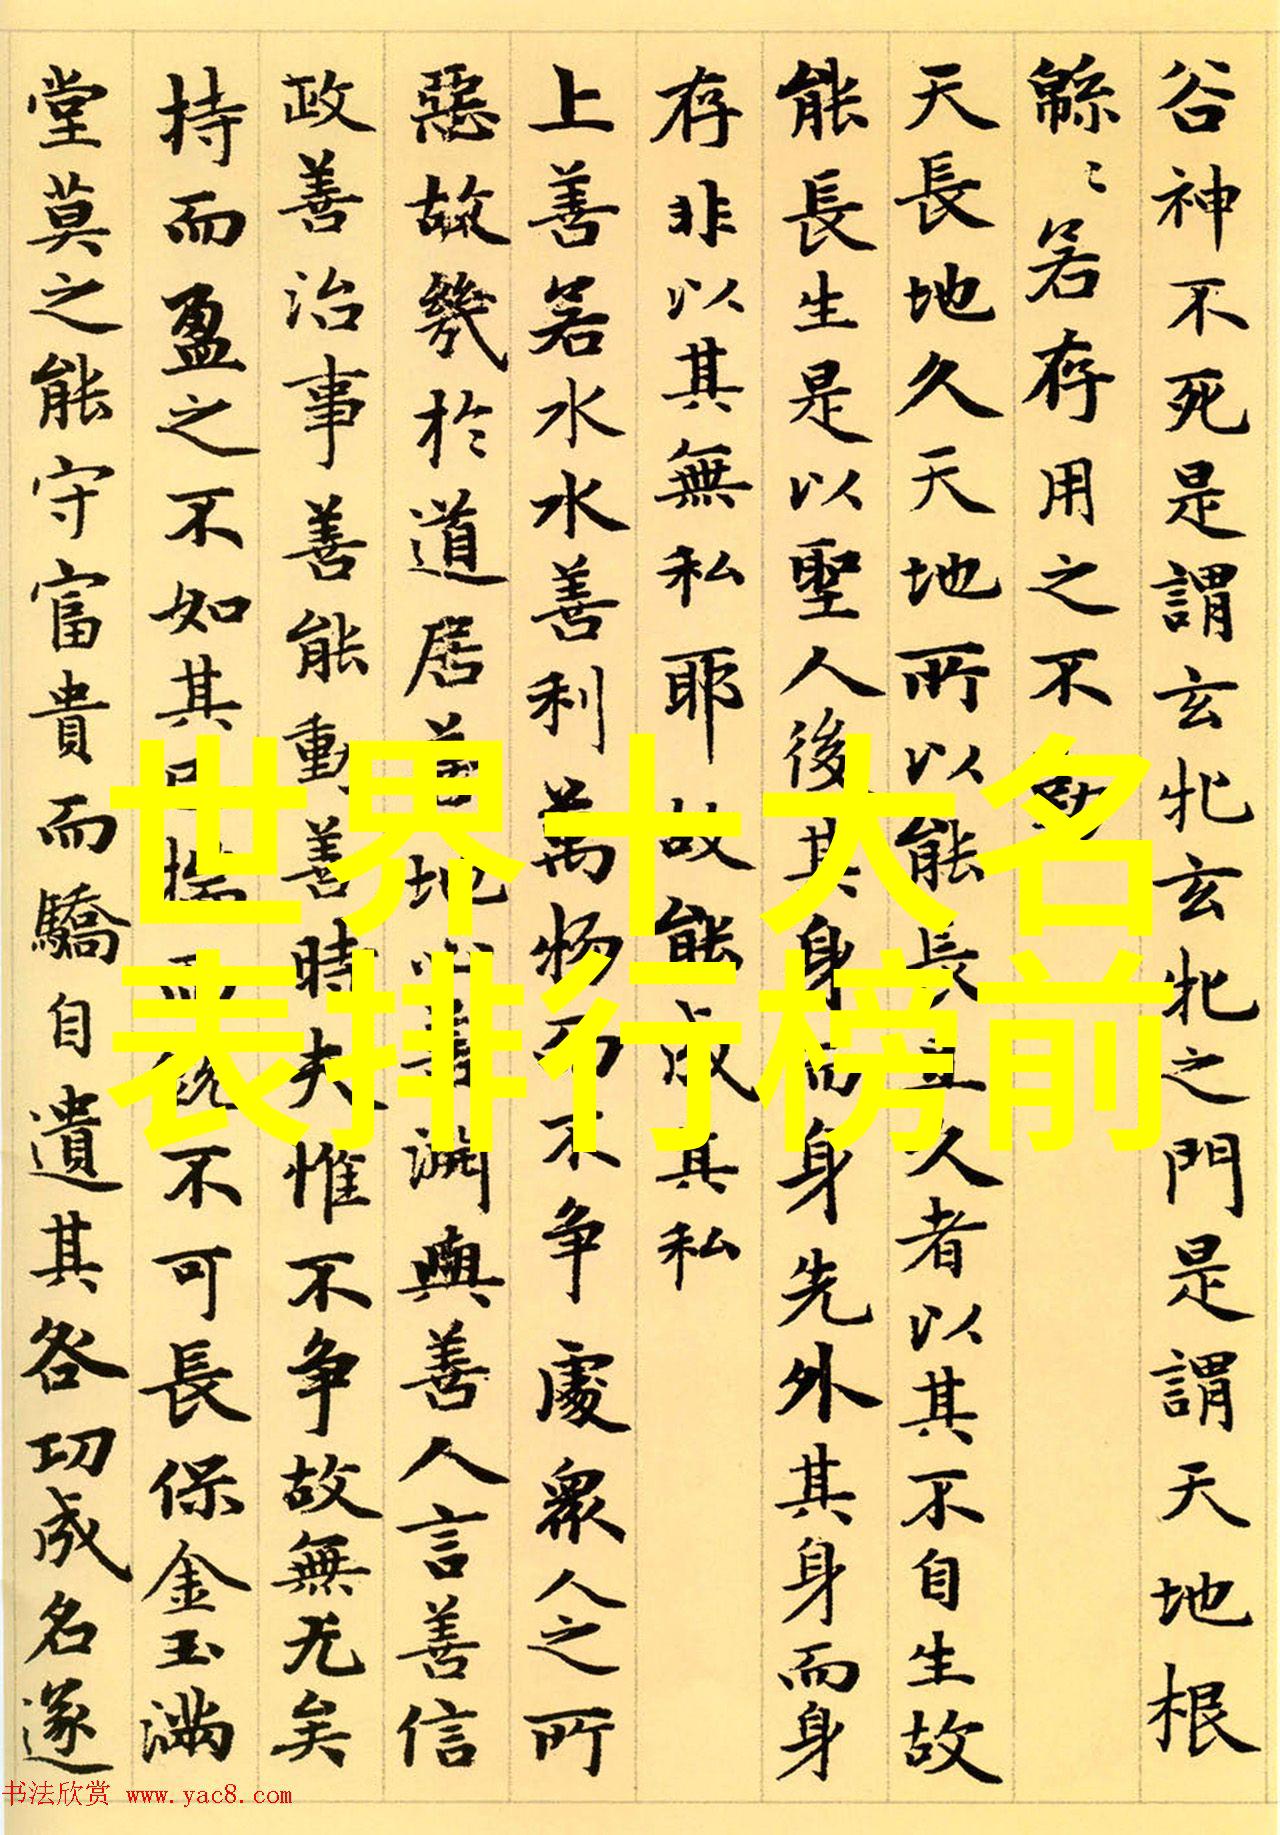 谷神不死是謂玄牝玄牝之門是謂天地根
緜〻若存用之不
天長地久天地所以能長且久者以其不自生故
能長生是以聖人後其身而身先外其身而身
存非以其無私耶故能成其私
上善若水水善利萬物而不争處衆人之所
惡故幾於道居善地心善渊與善人言善信
政善治事善能動善時夫惟不争故無尤矣
持而盈之不如其已揣而銳不可長保金玉滿
堂莫之能守富貴而驕自遺其咎功成名遂
世界十大名
表排行榜前
书法欣赏 www.yac8.com